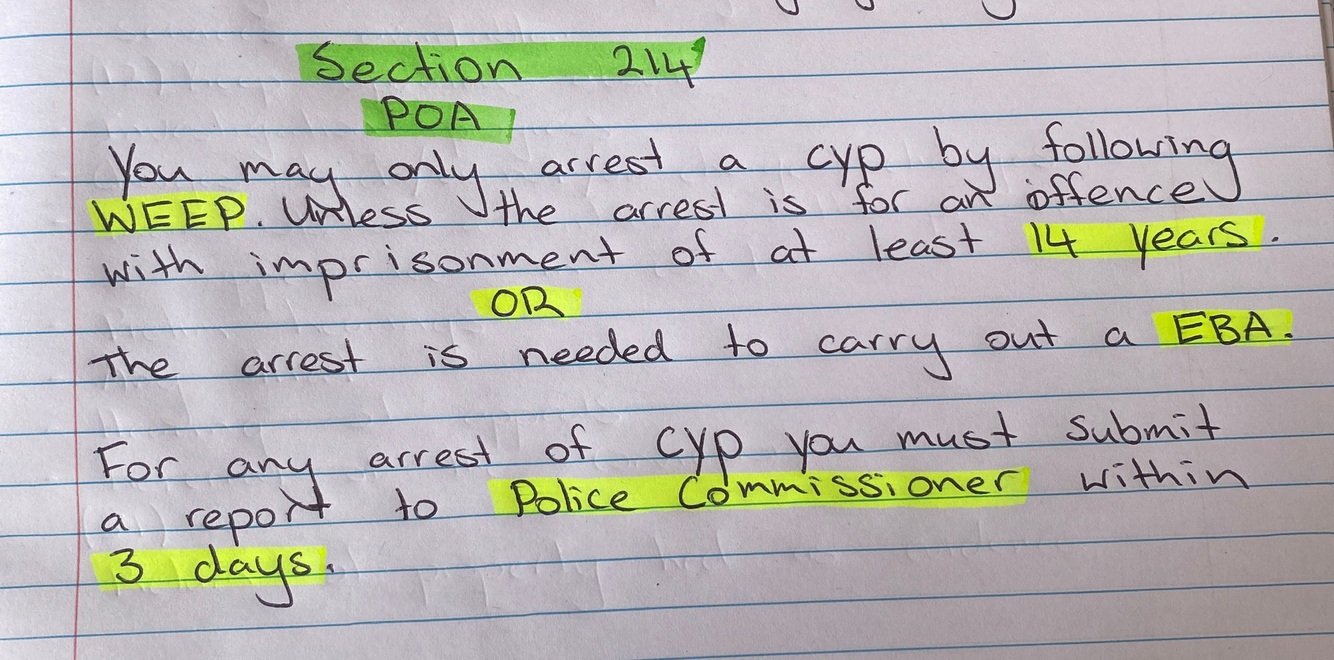 Section 214
POA
You may only arrest a cyp by following
WEEP. Unless the arrest is for an offence
with imprisonment of at least 14 years.
OR
The arrest is needed to carry out a EBA.
For any arrest of cyp you must submit
a report to Police Commissioner within
3 days.